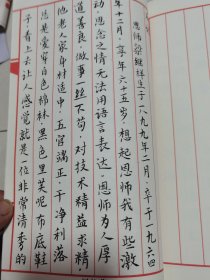 恩师梁继祥生于一八九九年二月，卒于一九六四
年十二月，享年六十五岁，想起恩师我有些激
动，恩念之情无法用语言表达，恩师为人厚
道善良，做事一丝不苟，对技术精益求精，
他老人家身材适中，五官端正，干净利落
总是爱穿白色棉袜，黑色里芙呢布底鞋
子，看上去让人感觉就是一位非常清秀的